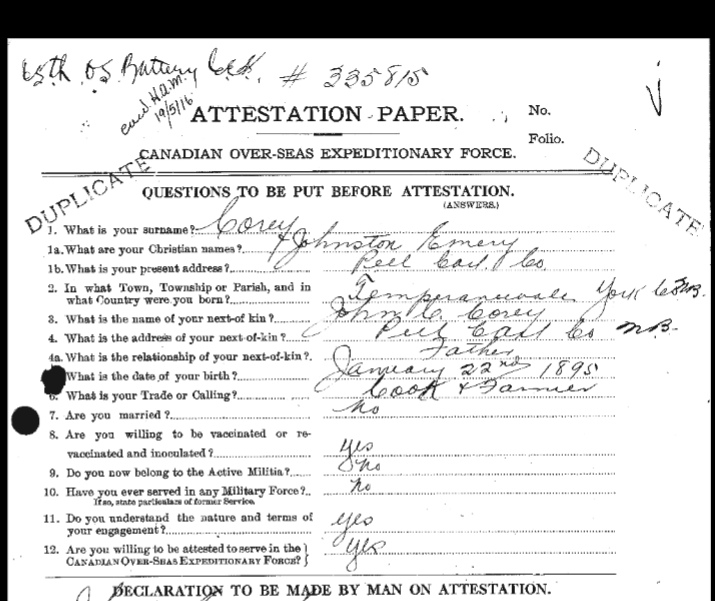 65th OS Battery C.E.F. # 335815
H.Q.M.
19/5/16
ATTESTATION PAPER.
No.
Folio.
CANADIAN OVER-SEAS EXPEDITIONARY FORCE.
DUPLICATE
DUPLICATE
QUESTIONS TO BE PUT BEFORE ATTESTATION.
(ANSWERS.)
1. What is your surname? Corey
1a. What are your Christian names? Johnston Emery
1b. What is your present address? Peel Carl. Co.
2. In what Town, Township or Parish, and in
what Country were you born? Temperancevale York Co NB.
3. What is the name of your next-of kin? John C. Corey
4. What is the address of your next-of-kin? Peel Carl Co NB.
4a. What is the relationship of your next-of-kin? Father
What is the date of your birth? January 22nd 1895
6. What is your Trade or Calling? Cook & Farmer
7. Are you married? No
8. Are you willing to be vaccinated or re-
vaccinated and inoculated? Yes
9. Do you now belong to the Active Militia? No
10. Have you ever served in any Military Force? No
If so, state particulars of former Service.
11. Do you understand the nature and terms of
your engagement? Yes
12. Are you willing to be attested to serve in the
CANADIAN OVER-SEAS EXPEDITIONARY FORCE? Yes
DECLARATION TO BE MADE BY MAN ON ATTESTATION.